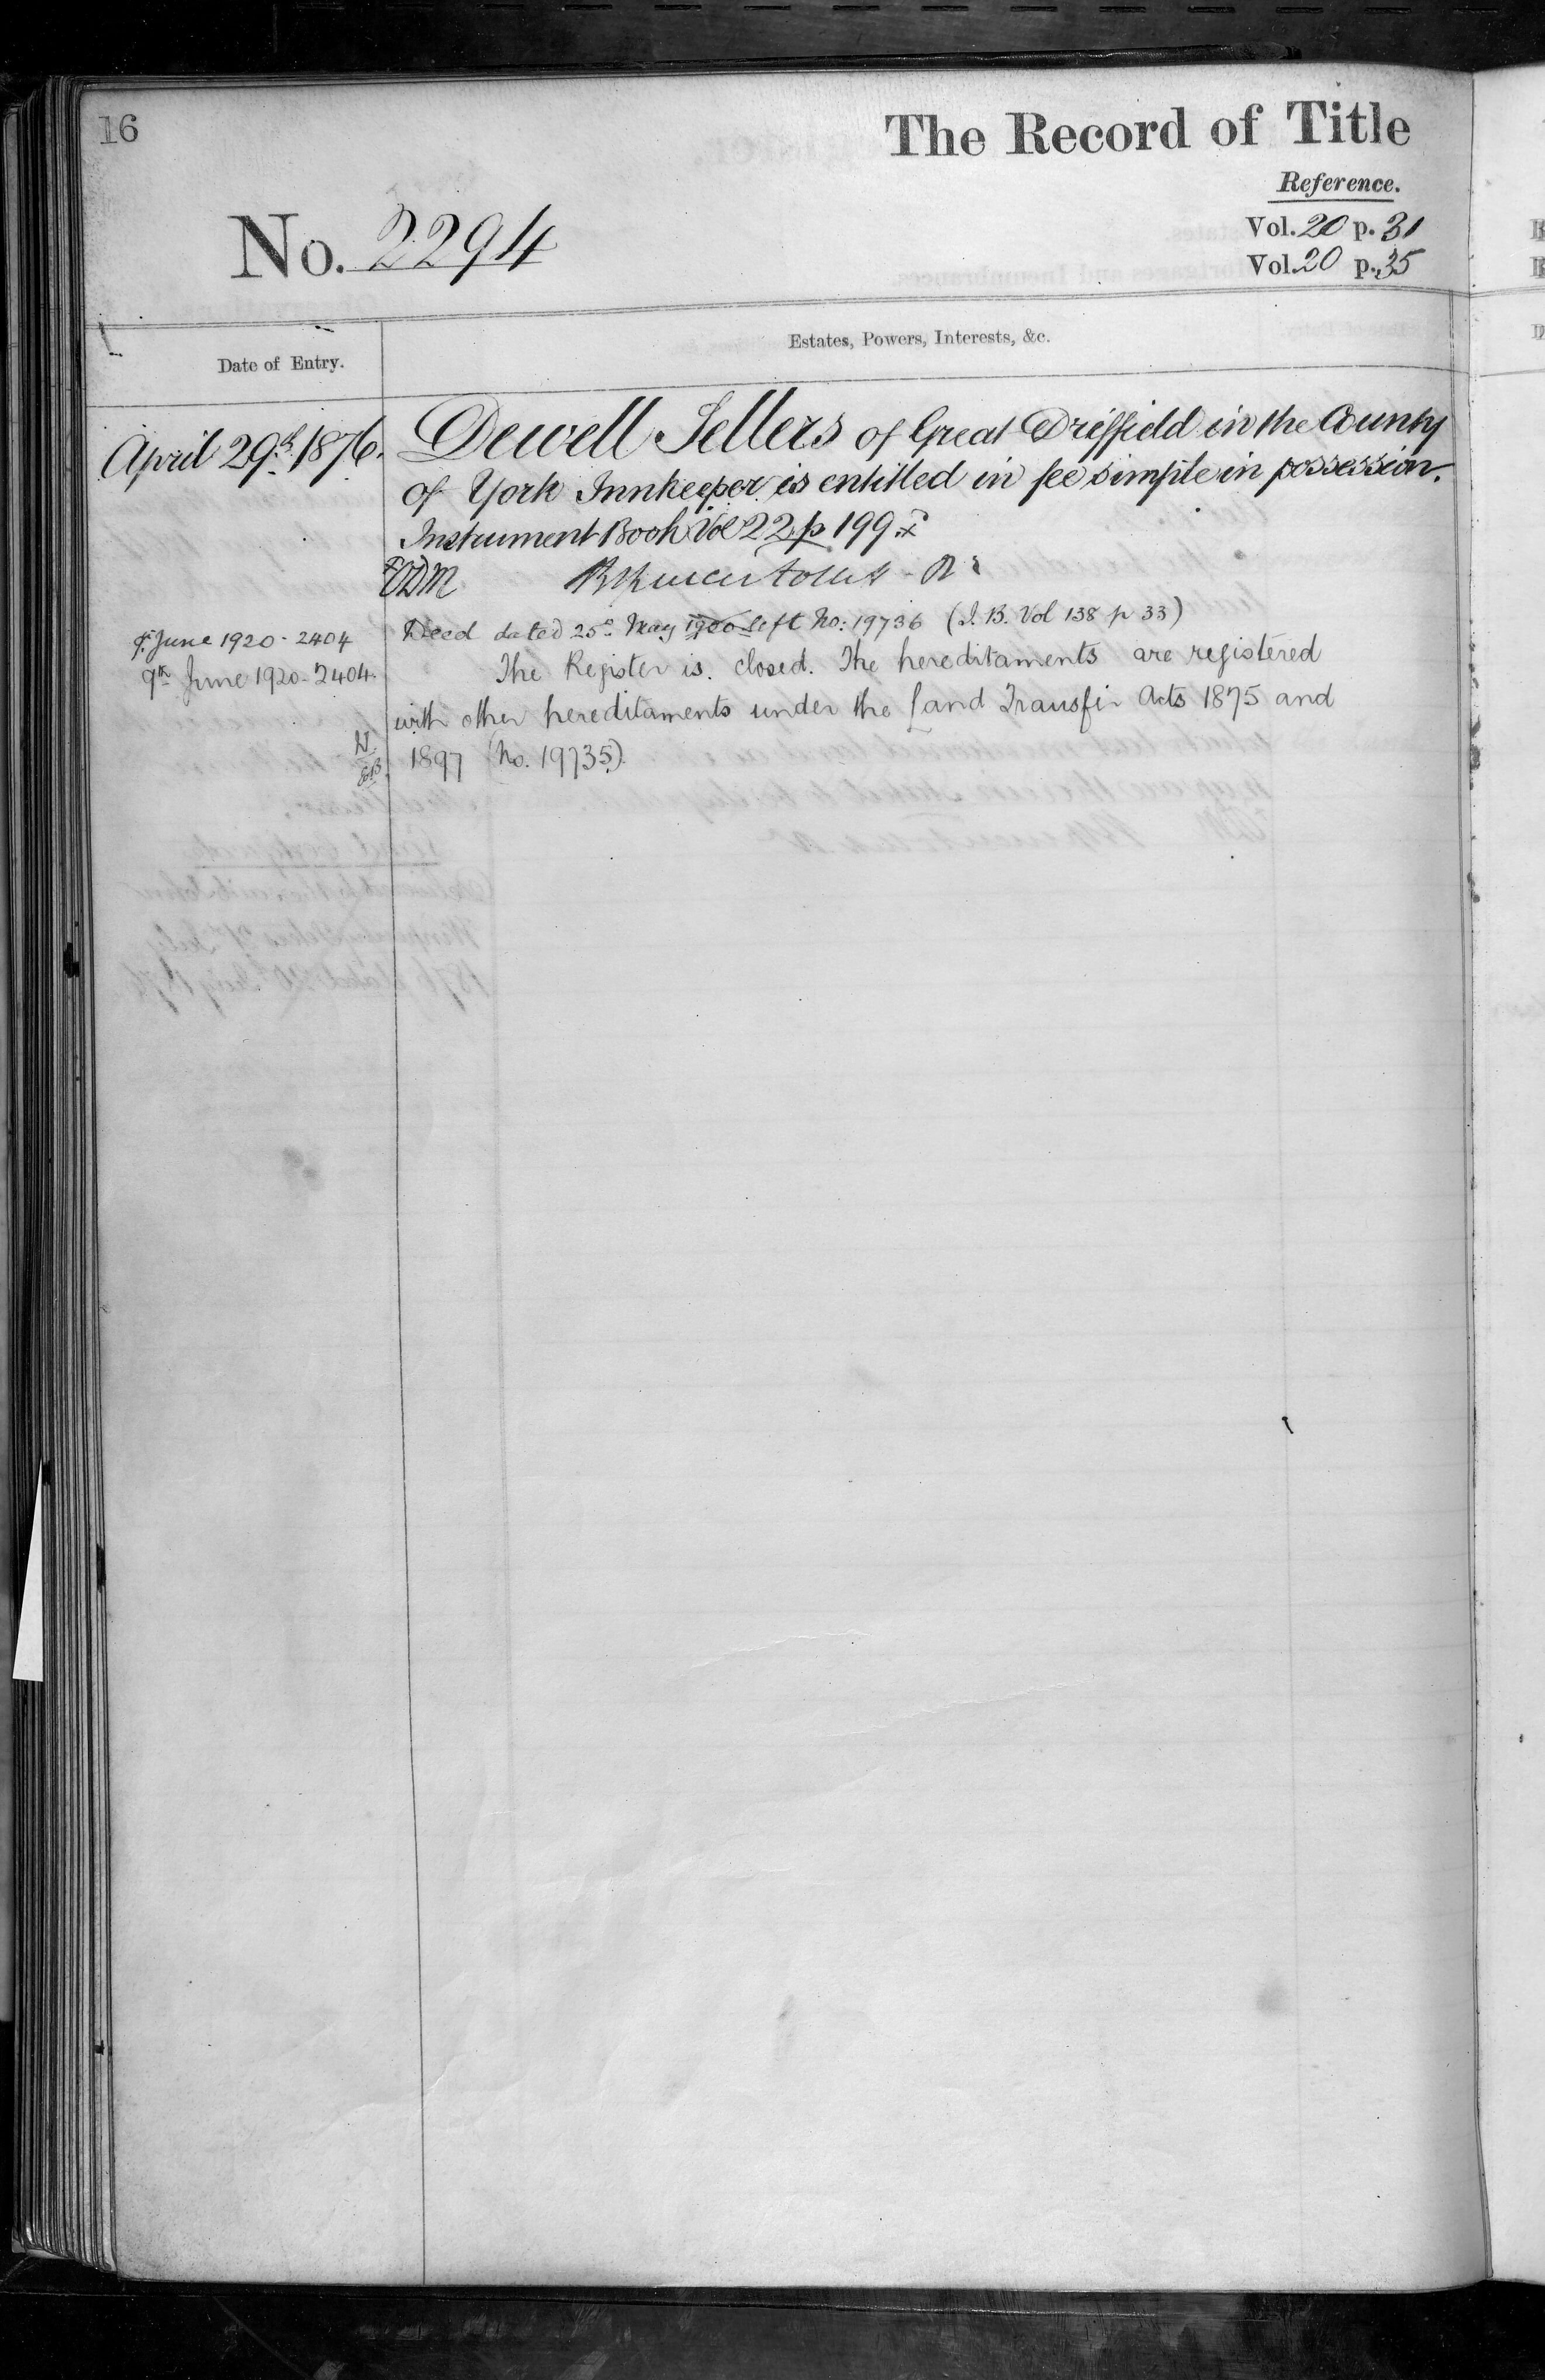 16
The Record of Title
Reference.
No. 2294
Vol. 20 p. 31
Vol. 20 p. 35
Date of Entry.
Estates, Powers, Interests, &c.
April 29th 1876.
Dewell Sellers of Great Driffield in the County
of York Innkeeper is entitled in fee simple in possession.
Instrument Book Vol 22 p 199
Deed dated 25 May 1900 left No: 19736 (I. B. Vol 138 p 33)
9 June 1920 - 2404
The Register is closed. The hereditaments are registered
9th June 1920 - 2404
with other hereditaments under the Land Transfer Acts 1875 and
1897 (No. 19735).